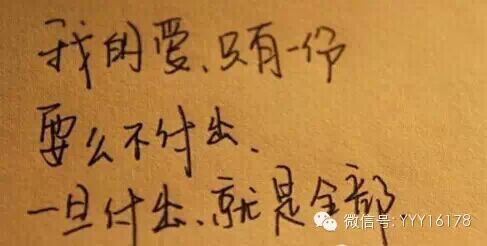 我的爱、只有一份
要么不付出、
一旦付出、就是全部
微信号: YYY16178